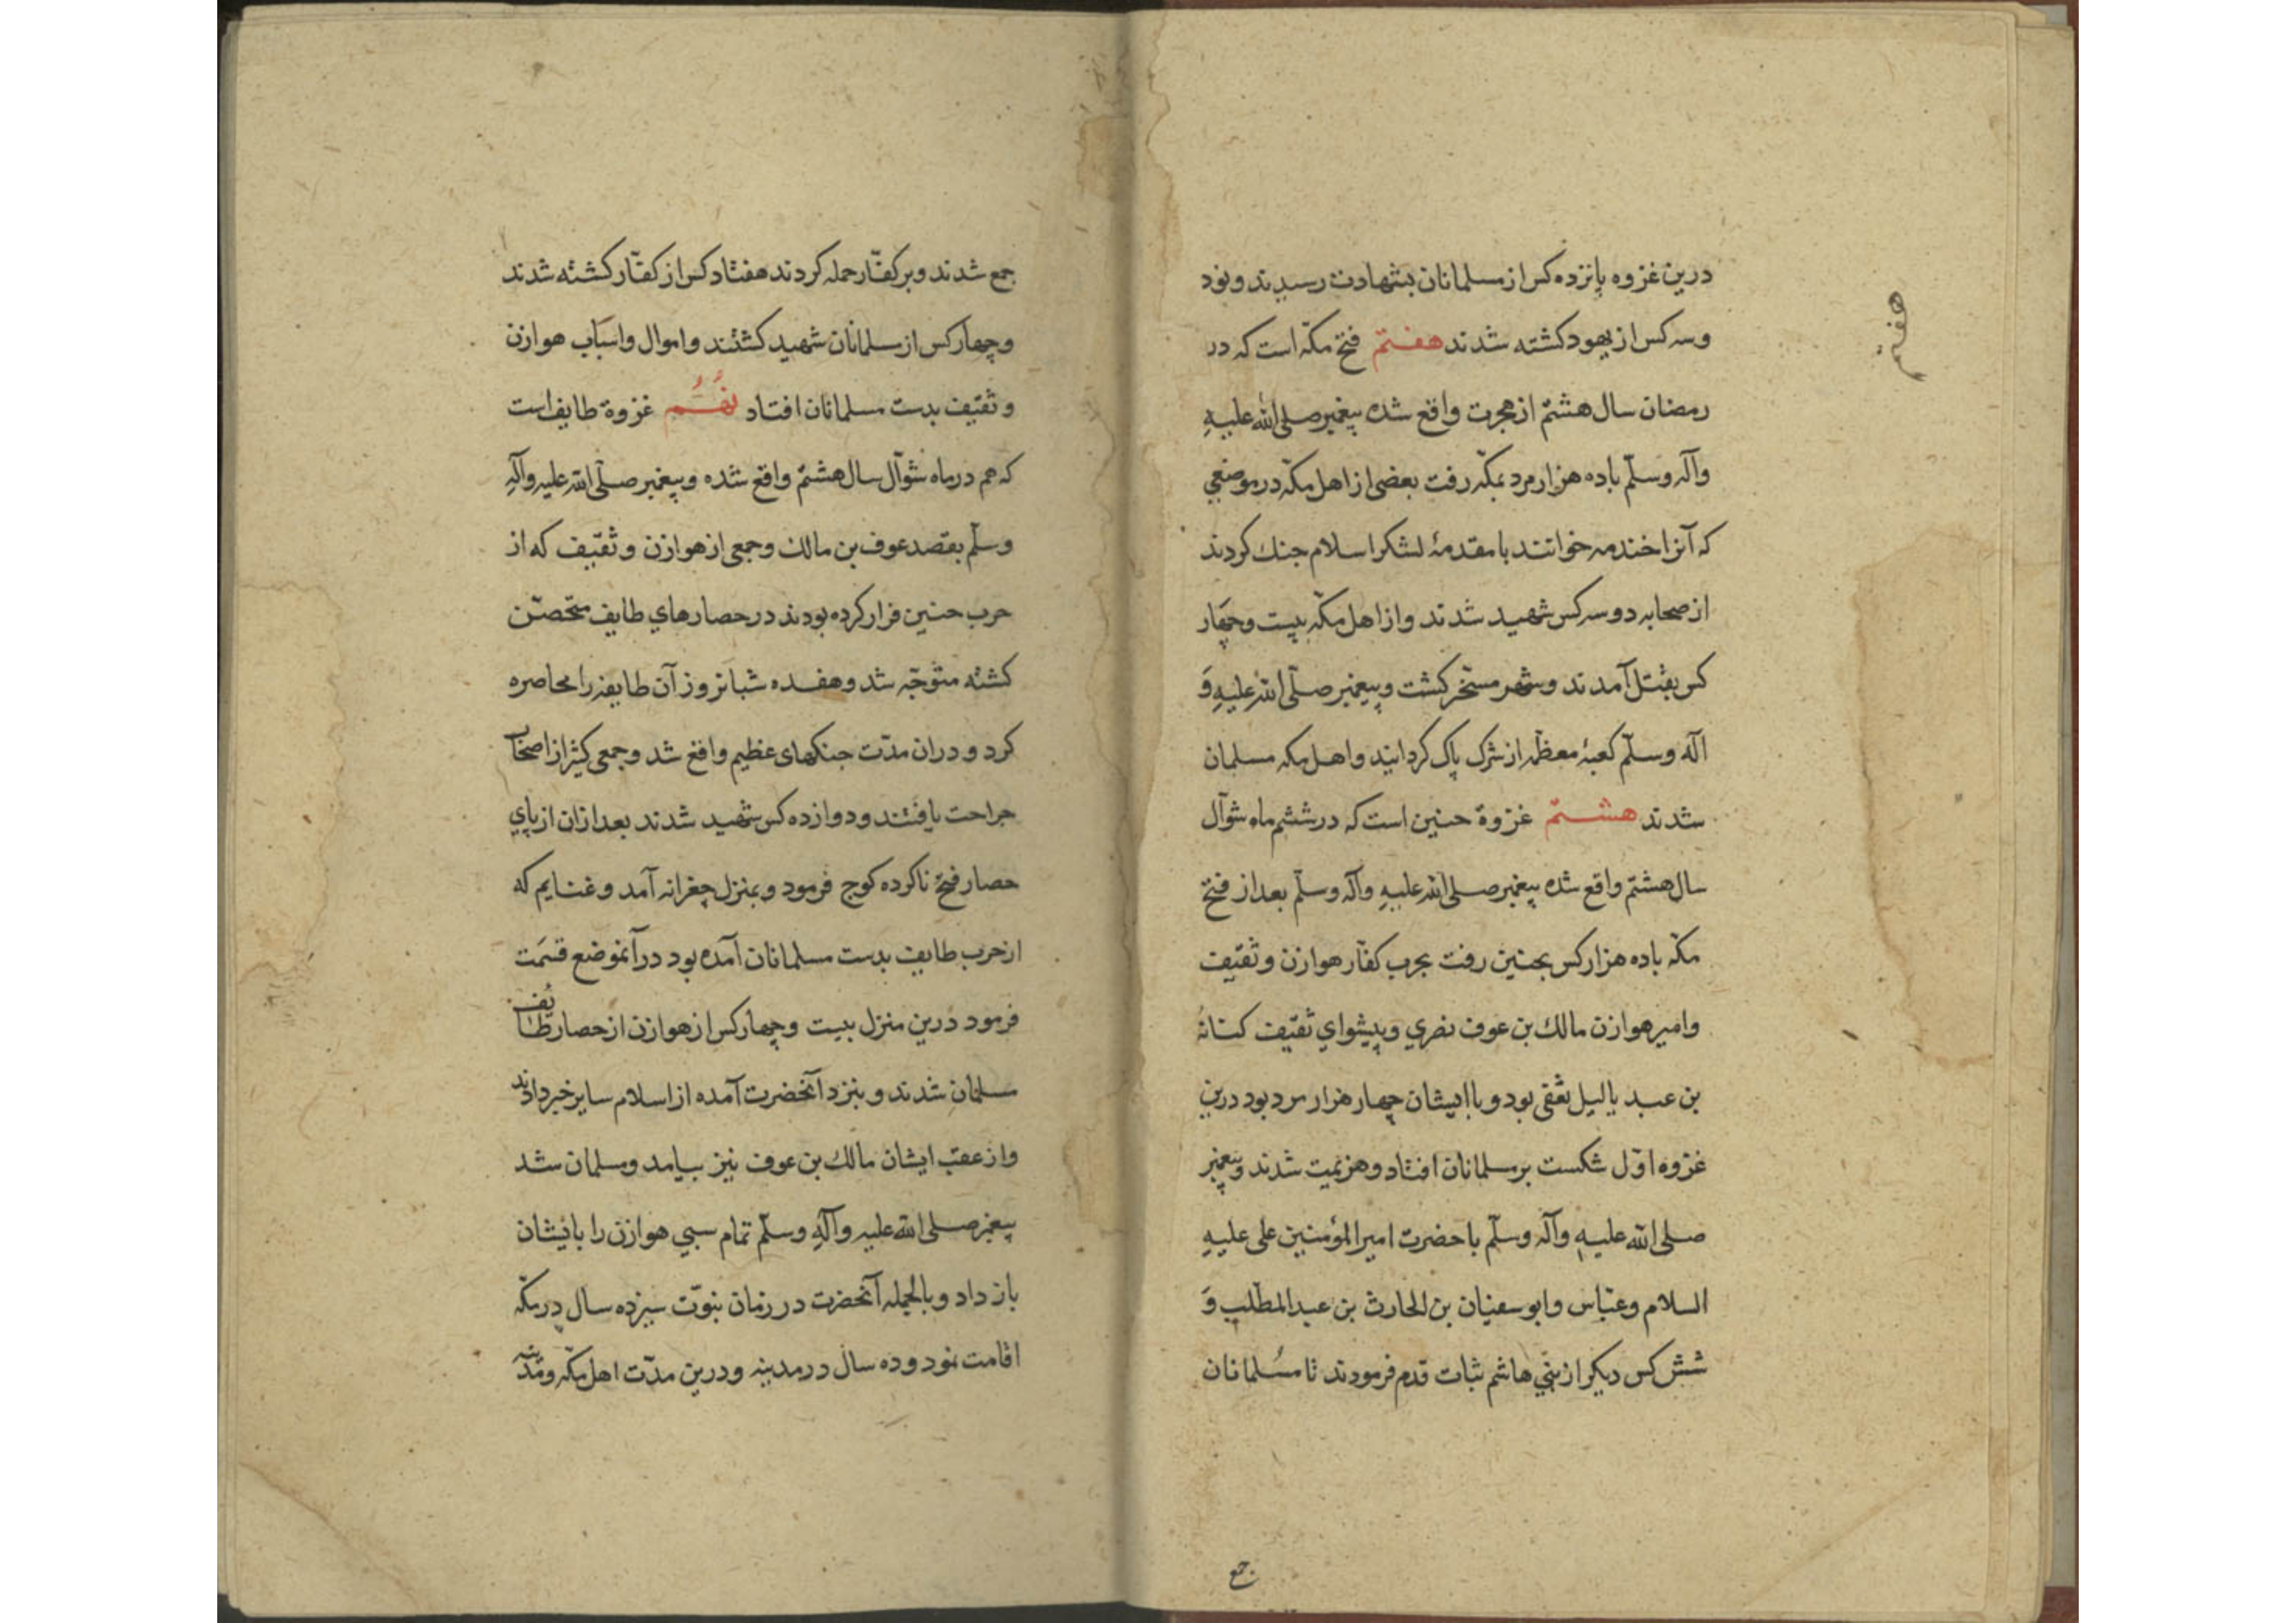 درین غزوه پانزده کس از مسلمانان بشهادت رسیدند و نود
وسه کس از یهود کشته شدند هفتم فتح مکّه است که در
رمضان سال هشتم از هجرت واقع شده پیغمبر صلی الله علیهِ
وآله وسلّم باده هزار مرد بمکّه رفت بعضی از اهل مکّه در موضعی
که آنرا خندمه خوانند با مقدمهٔ لشکر اسلام جنك کردند
از صحابه دو سه کس شهید شدند واز اهل مکّه بیست وچهار
کس بقتل آمدند وشهر مسخّر کشت وپیغمبر صلّی الله علیهِ وَ
اله وسلّم کعبهٔ معظّمه از شرک پاک کردانید واهل مکه مسلمان
شدند هشتم غزوهٔ حنین است که در ششم ماه شوّال
سال هشتم واقع شده پیغمبر صلی الله علیهِ وآله وسلّم بعد از فتح
مکّه باده هزار کس بحنین رفت بحرب کفّار هوازن و ثقیف
وامیر هوازن مالك بن عوف نصری وپیشوای ثقیف کنانهٔ
بن عبد یالیل ثقفی بود و باایشان چهار هزار مرد بود درین
غزوه اوّل شکست بر مسلمانان افتاد وهزیمت شدند وپیغمبر
صلی الله علیهِ وآله وسلّم با حضرت امیر المؤمنین علی علیهِ
السلام وعبّاس وابوسفیان بن الحارث بن عبد المطّلب وَ
شش کس دیکر از بنی هاشم ثبات قدم فرمودند تا مسُلمانان
جمع
هفتم
جمع شدند وبر کفّار حمله کردند هفتاد کس از کفّار کشته شدند
وچهار کس از مسلمانان شهید کشتند واموال واسباب هوازن
و ثقیف بدست مسلمانان افتاد نهُم غزوهٔ طایف است
که هم در ماه شوّال سال هشتم واقع شده وپیغمبر صلّی الله علیه وآلهِ
وسلّم بقصد عوف بن مالك وجمعی از هوازن و ثقیف که از
حرب حنین فرار کرده بودند در حصارهای طایف متحصّن
کشته متوجّه شد وهفده شبانروز آن طایفه را محاصره
کرد و دران مدّت جنکهای عظیم واقع شد وجمعی کثیر از اصحاب
جراحت یافتند ودوازده کس شهید شدند بعد ازان از پای
حصار فتح ناکرده کوچ فرمود وبمنزل جعرانه آمد وغنایم که
از حرب طایف بدست مسلمانان آمده بود در آنموضع قسمَت
فرمود درین منزل بیست وچهار کس از هوازن از حصار طائف
مسلمان شدند و بنزد آنحضرت آمده از اسلام سایر خبر دادند
واز عقب ایشان مالك بن عوف نیز بیامد ومسلمان شد
پیغمبر صلی الله علیه وآلهِ وسلّم تمام سبی هوازن را بایشان
باز داد وبالجمله آنحضرت در زمان نبوّت سیزده سال در مکّه
اقامت نمود وده سال در مدینه ودرین مدّت اهل مکّه ومدینه